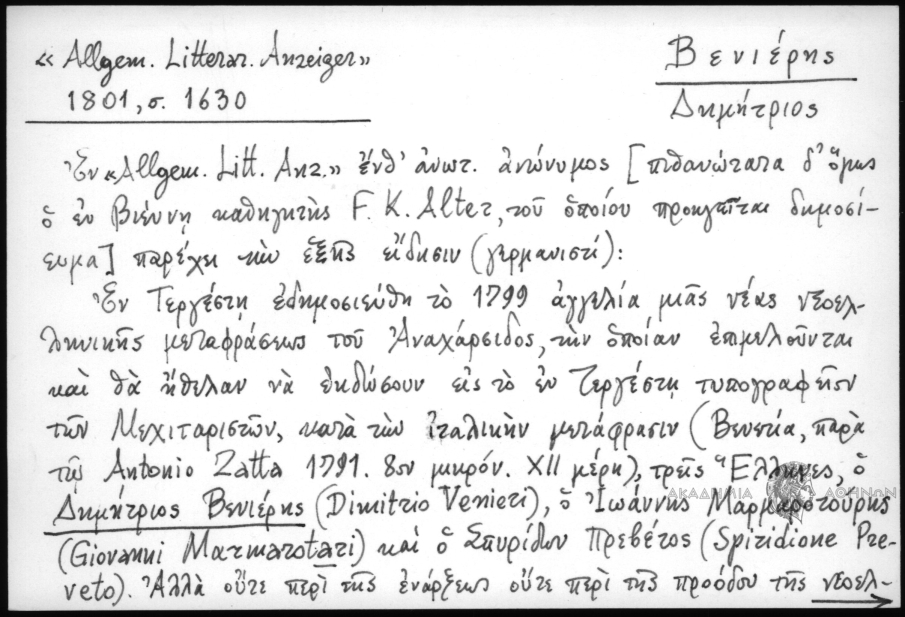 «Allgem. Litterar. Anzeiger»
1801, σ. 1630
Βενιέρης
Δημήτριος
Ἐν «Allgem. Litt. Anz.» ἔνθ' ἀνωτ. ἀνώνυμος [πιθανώτατα δ' ὅμως
ὁ ἐν Βιέννῃ καθηγητὴς F. K. Alter, τοῦ ὁποίου προηγεῖται δημοσί-
ευμα] παρέχει τὴν ἑξῆς εἴδησιν (γερμανιστί):
Ἐν Τεργέστῃ ἐδημοσιεύθη τὸ 1799 ἀγγελία μιᾶς νέας νεοελ-
ληνικῆς μεταφράσεως τοῦ Ἀναχάρσιδος, τὴν ὁποίαν ἐπιμελοῦνται
καὶ θὰ ἤθελαν νὰ ἐκδώσουν εἰς τὸ ἐν Τεργέστῃ τυπογραφεῖον
τῶν Μεχιταριστῶν, κατὰ τὴν ἰταλικὴν μετάφρασιν (Βενετία, παρὰ
τῷ Antonio Zatta 1791. 8ον μικρόν. XII μέρη), τρεῖς Ἕλληνες, ὁ
Δημήτριος Βενιέρης (Dimitrio Venieri), ὁ Ἰωάννης Μαρμαροτούρης
(Giovanni Marmarotari) καὶ ὁ Σπυρίδων Πρεβέτος (Spiridione Pre-
veto). Ἀλλὰ οὔτε περὶ τῆς ἐνάρξεως οὔτε περὶ τῆς προόδου τῆς νεοελ-
ΑΚΑΔΗΜΙΑ ΑΘΗΝΩΝ